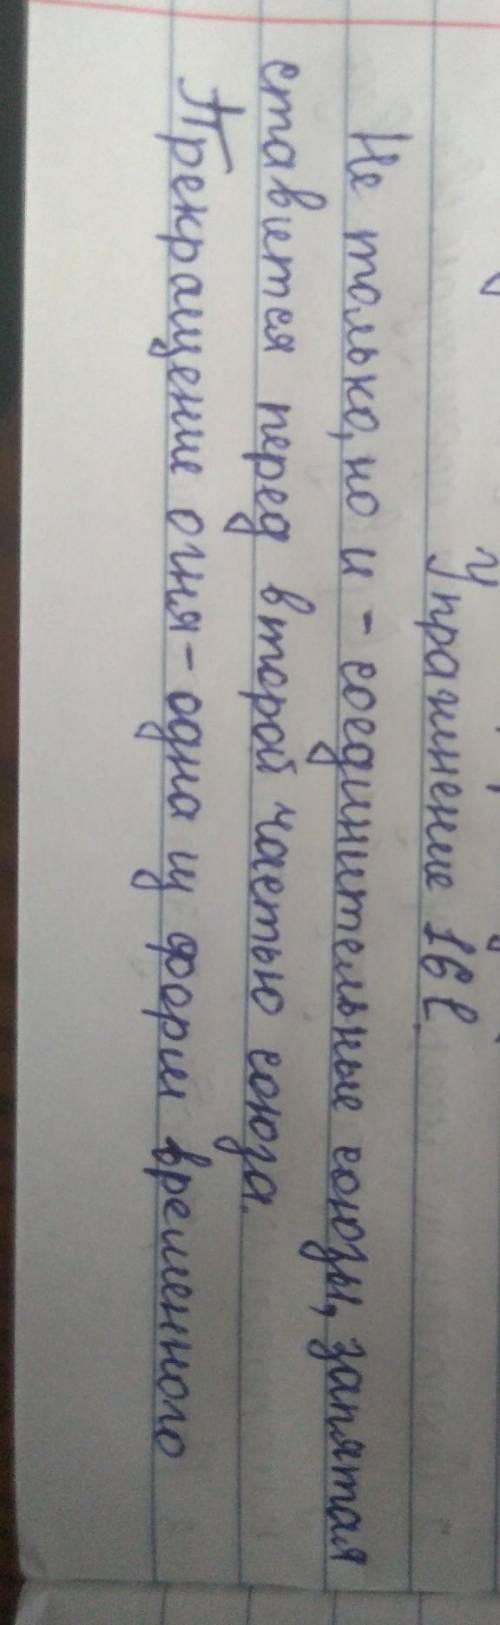 Упражнение 16
Не только, но и - соединительные союзы, запятая
ставится перед второй частью союза.
Прекращение огня - одна из форм временного